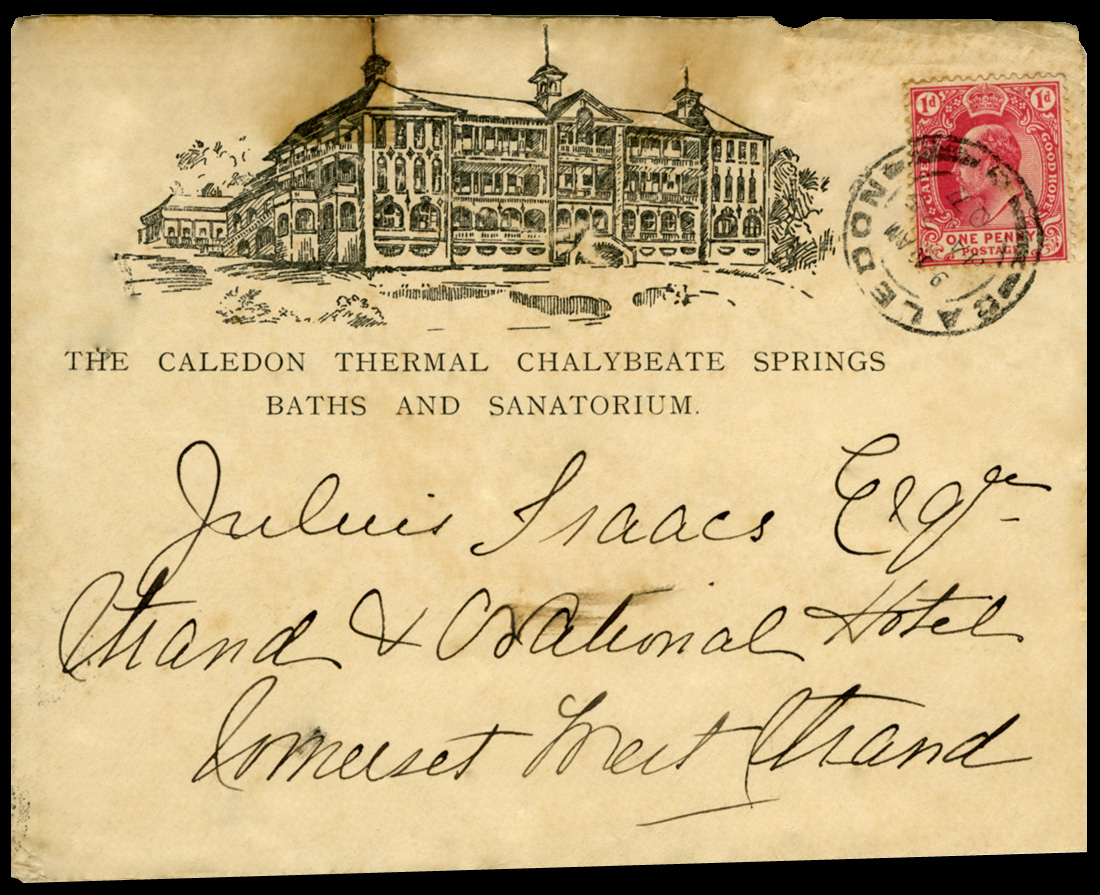 1d 1d
CAPE OF GOOD HOPE
ONE PENNY
POSTAGE
CALEDON
AM
THE CALEDON THERMAL CHALYBEATE SPRINGS
BATHS AND SANATORIUM.
Julius Isaacs Esqre
Strand & National Hotel
Somerset West Strand